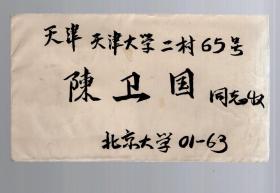 天津 天津大学二村65号
陳卫国 同志收
北京大学 01-63